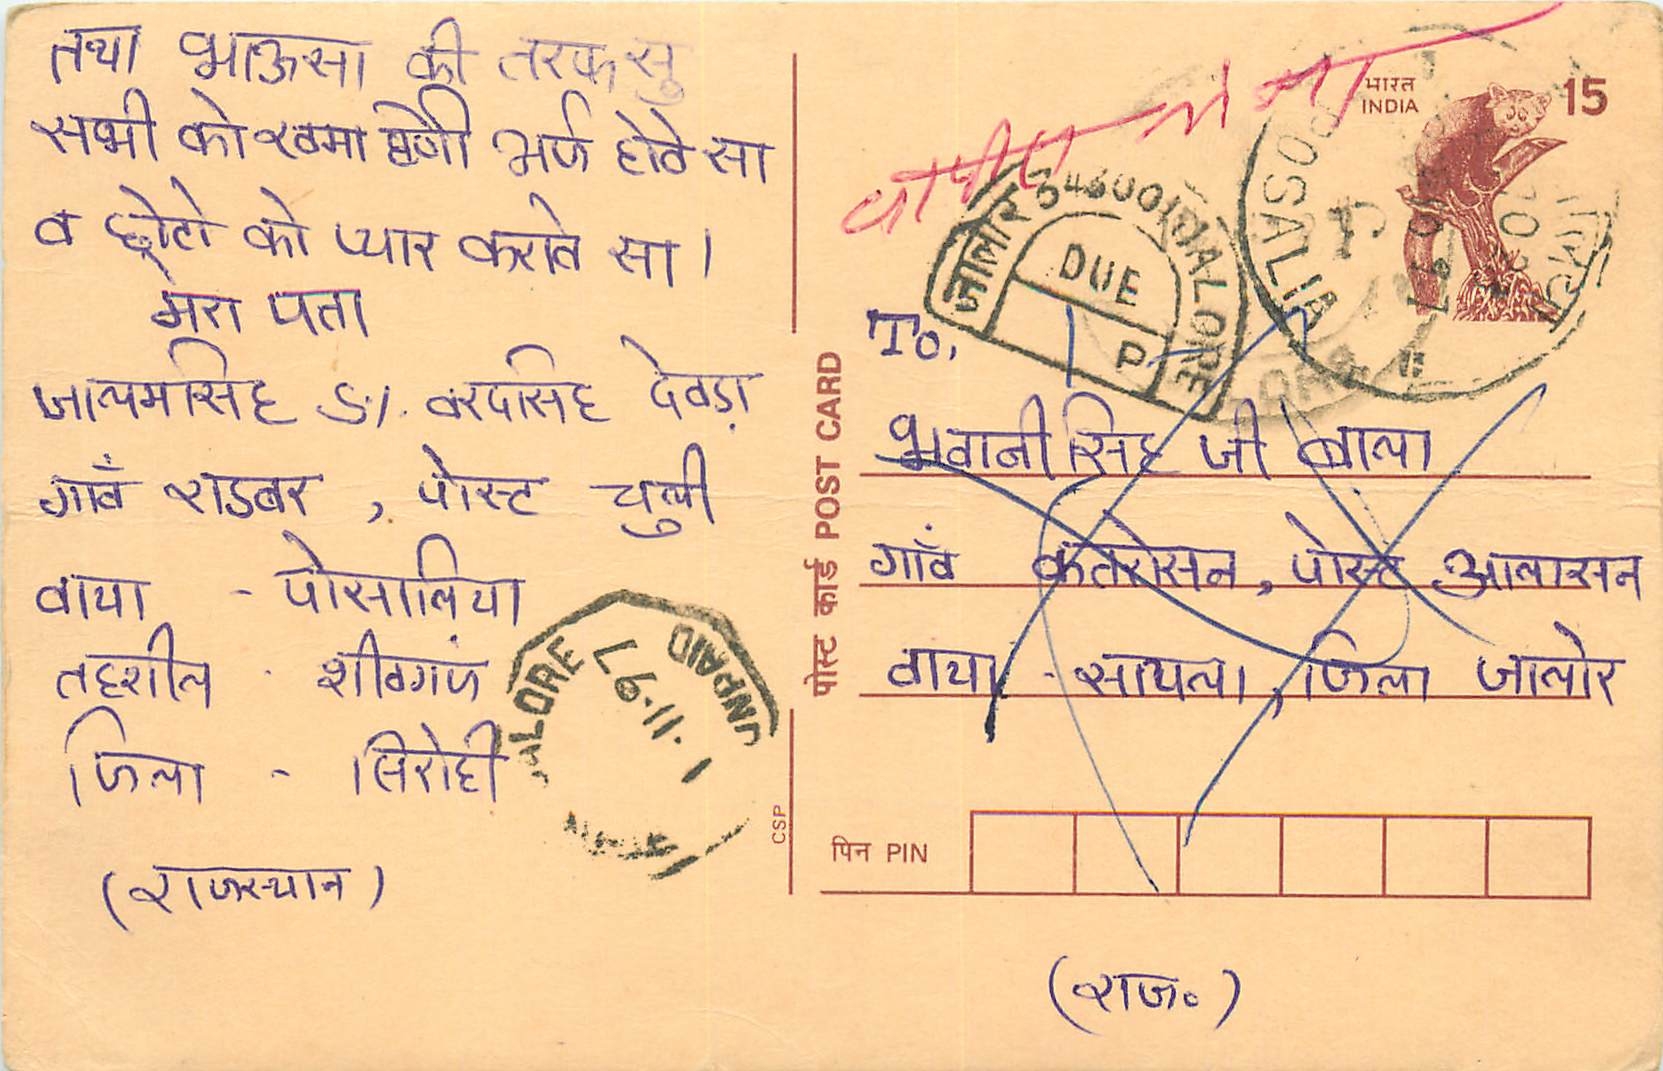 तथा भाऊसा की तरफ सु
सभी को खमा घणी अर्ज होवे सा
व छोटो को प्यार करावे सा।
मेरा पता
जालमसिंह S/. वरदसिंह देवड़ा
गाँव राडबर , पोस्ट चुली
वाया - पोसालिया
तहशील - शीवगंज
जिला - सिरोही
(राजस्थान)
JALORE
UNPAID
1.11.97
CSP
पोस्ट कार्ड POST CARD
भारत
INDIA
15
POSALIA
जालोर 343001 JALORE
DUE
P.
To,
भवानी सिंह जी बाला
गाँव कतरोसन, पोस्ट आलासन
वाया - सायला, जिला जालोर
पिन PIN
(राज॰)